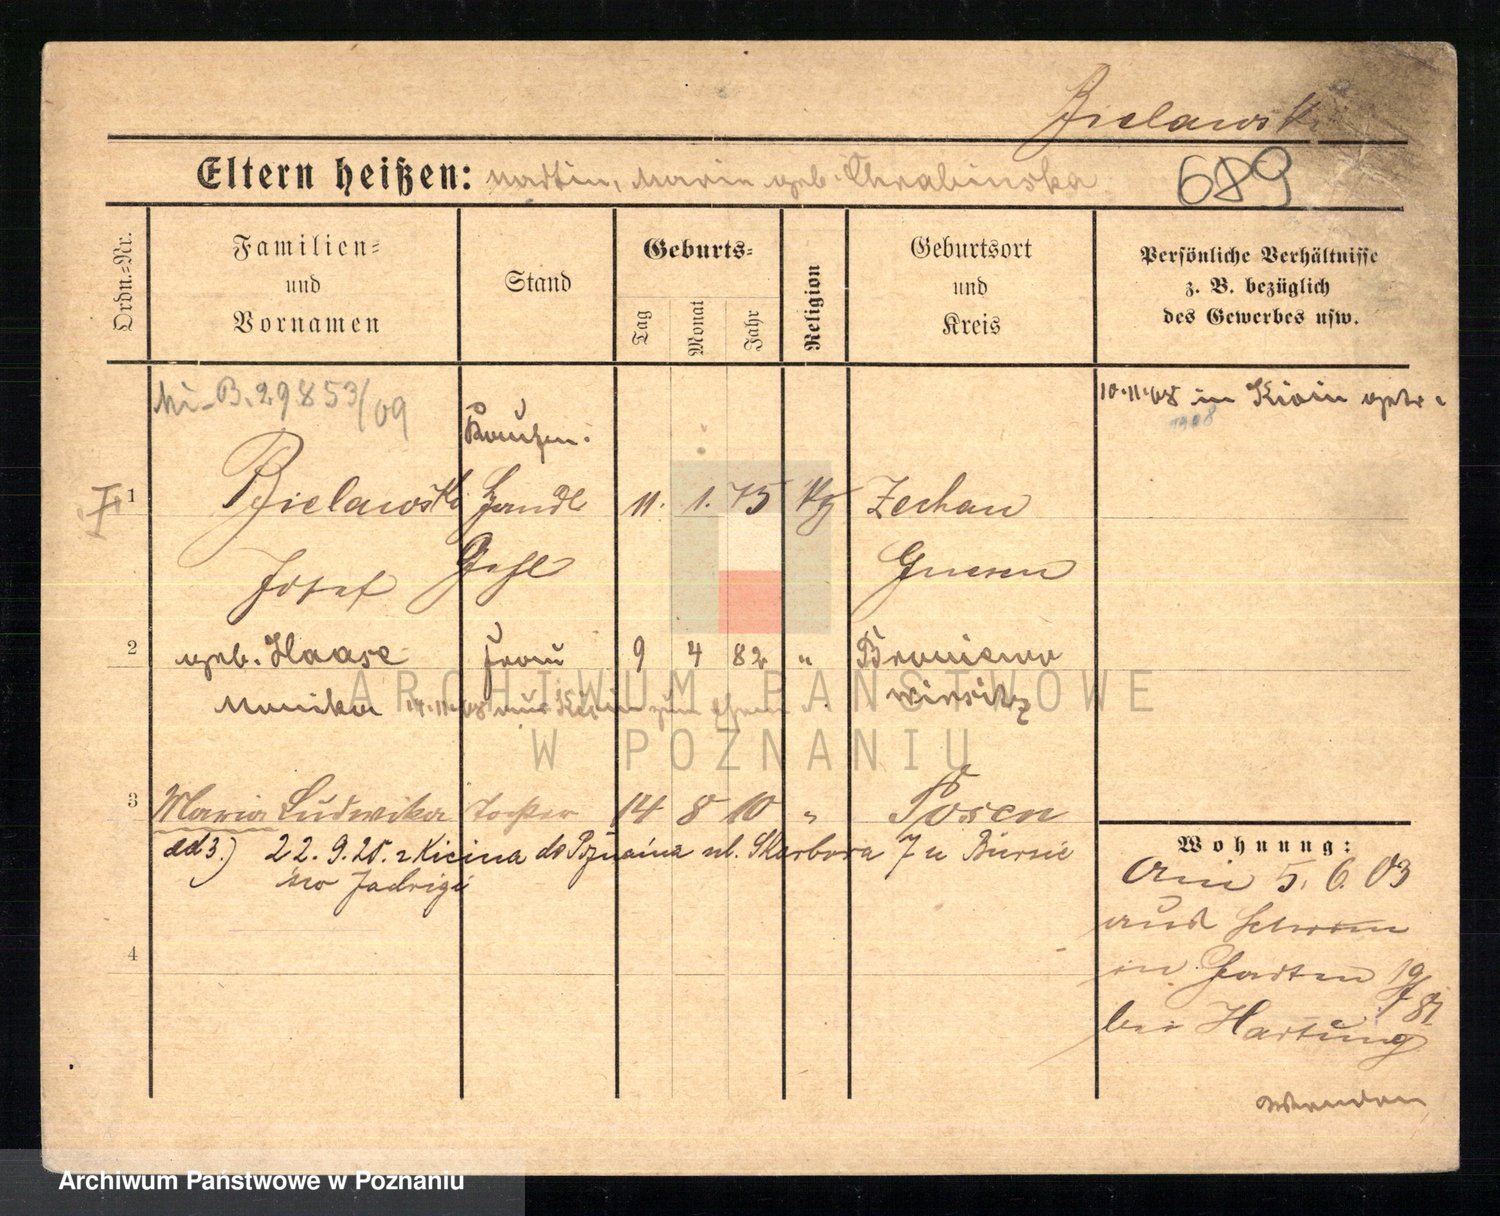 Bielawski
Eltern heißen: Martin, Marie geb. Chrabinska
689
Ordn.=Nr.
Familien=
und
Vornamen
Stand
Geburts=
Tag
Monat
Jahr
Religion
Geburtsort
und
Kreis
Persönliche Verhältnisse
z. B. bezüglich
des Gewerbes usw.
B. 29853/09
10.11.08 in Kicin getr.
1908
Kaufm.
1 Bielawski Handl 11. 1. 75 Zechau
Josef Gehl Gnesen
2 geb. Haase Frau 9 4 82 " Broniewo
Monika 14.11.08 aus Kicin zum Wirsitz
3 Maria Ludwika Tochter 14 8 10 " Posen
ad 3.) 22.9.25. z Kicina do Poznania ul. Skarbowa 7 u
Jadwigi
4
Wohnung:
Am 5. 6. 03
aus
in Garten 19
bei Hartung
Wenden
ARCHIWUM PAŃSTWOWE
W POZNANIU
Archiwum Państwowe w Poznaniu